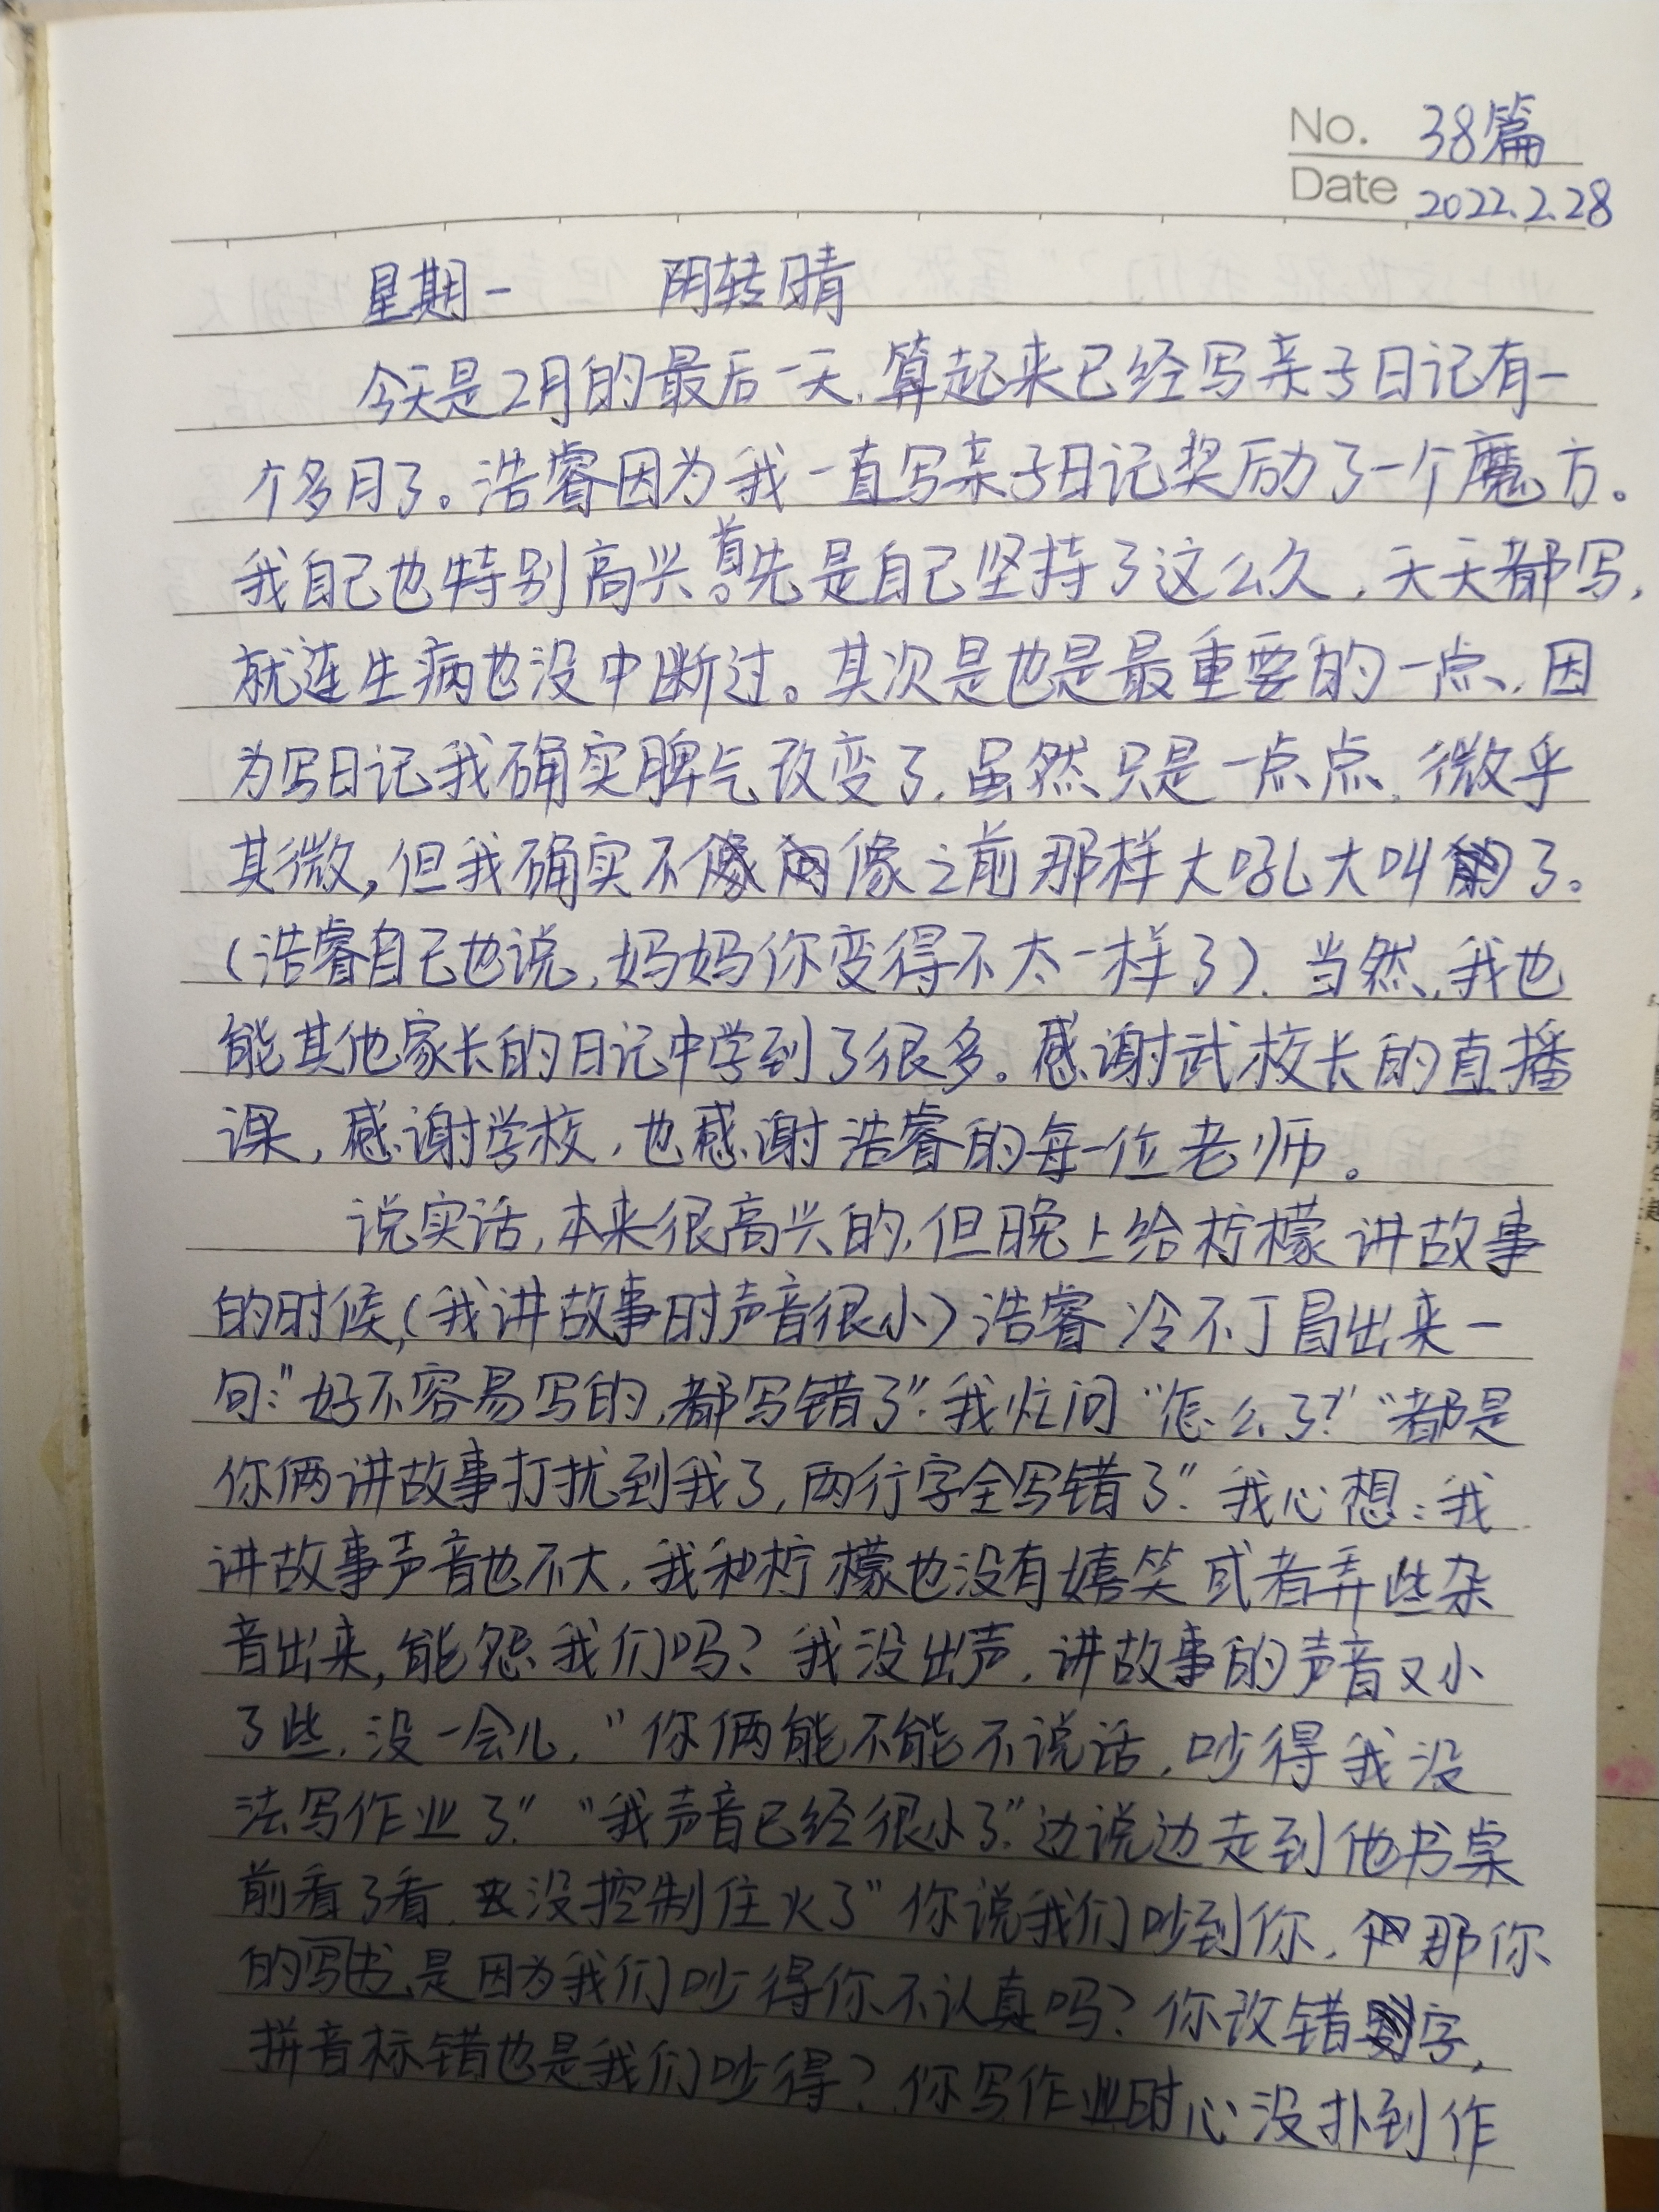 No. 38篇
Date 2022.2.28
星期一 阴转晴
今天是2月的最后一天,算起来已经写亲子日记有一
个多月了。浩睿因为我一直写亲子日记奖励了一个魔方。
我自己也特别高兴。首先是自己坚持了这么久,天天都写,
就连生病也没中断过。其次是也是最重要的一点,因
为写日记我确实脾气改变了,虽然只是一点点,微乎
其微,但我确实不像之前那样大吼大叫了。
(浩睿自己也说,妈妈你变得不太一样了).当然,我也
能其他家长的日记中学到了很多。感谢武校长的直播
课,感谢学校,也感谢浩睿的每一位老师。
说实话,本来很高兴的,但晚上给柠檬讲故事
的时候,(我讲故事时声音很小)浩睿冷不丁冒出来一
句:"好不容易写的,都写错了".我忙问"怎么了?""都是
你俩讲故事打扰到我了,两行字全写错了".我心想:我
讲故事声音也不大,我和柠檬也没有嬉笑或者弄些杂
音出来,能怨我们吗?我没出声,讲故事的声音又小
了些,没一会儿,"你俩能不能不说话,吵得我没
法写作业了""我声音已经很小了"边说边走到他书桌
前看了看,没控制住火了"你说我们吵到你,那你
的写是因为我们吵得你不认真吗?你改错字,
拼音标错也是我们吵得?你写作业时心没扑到作